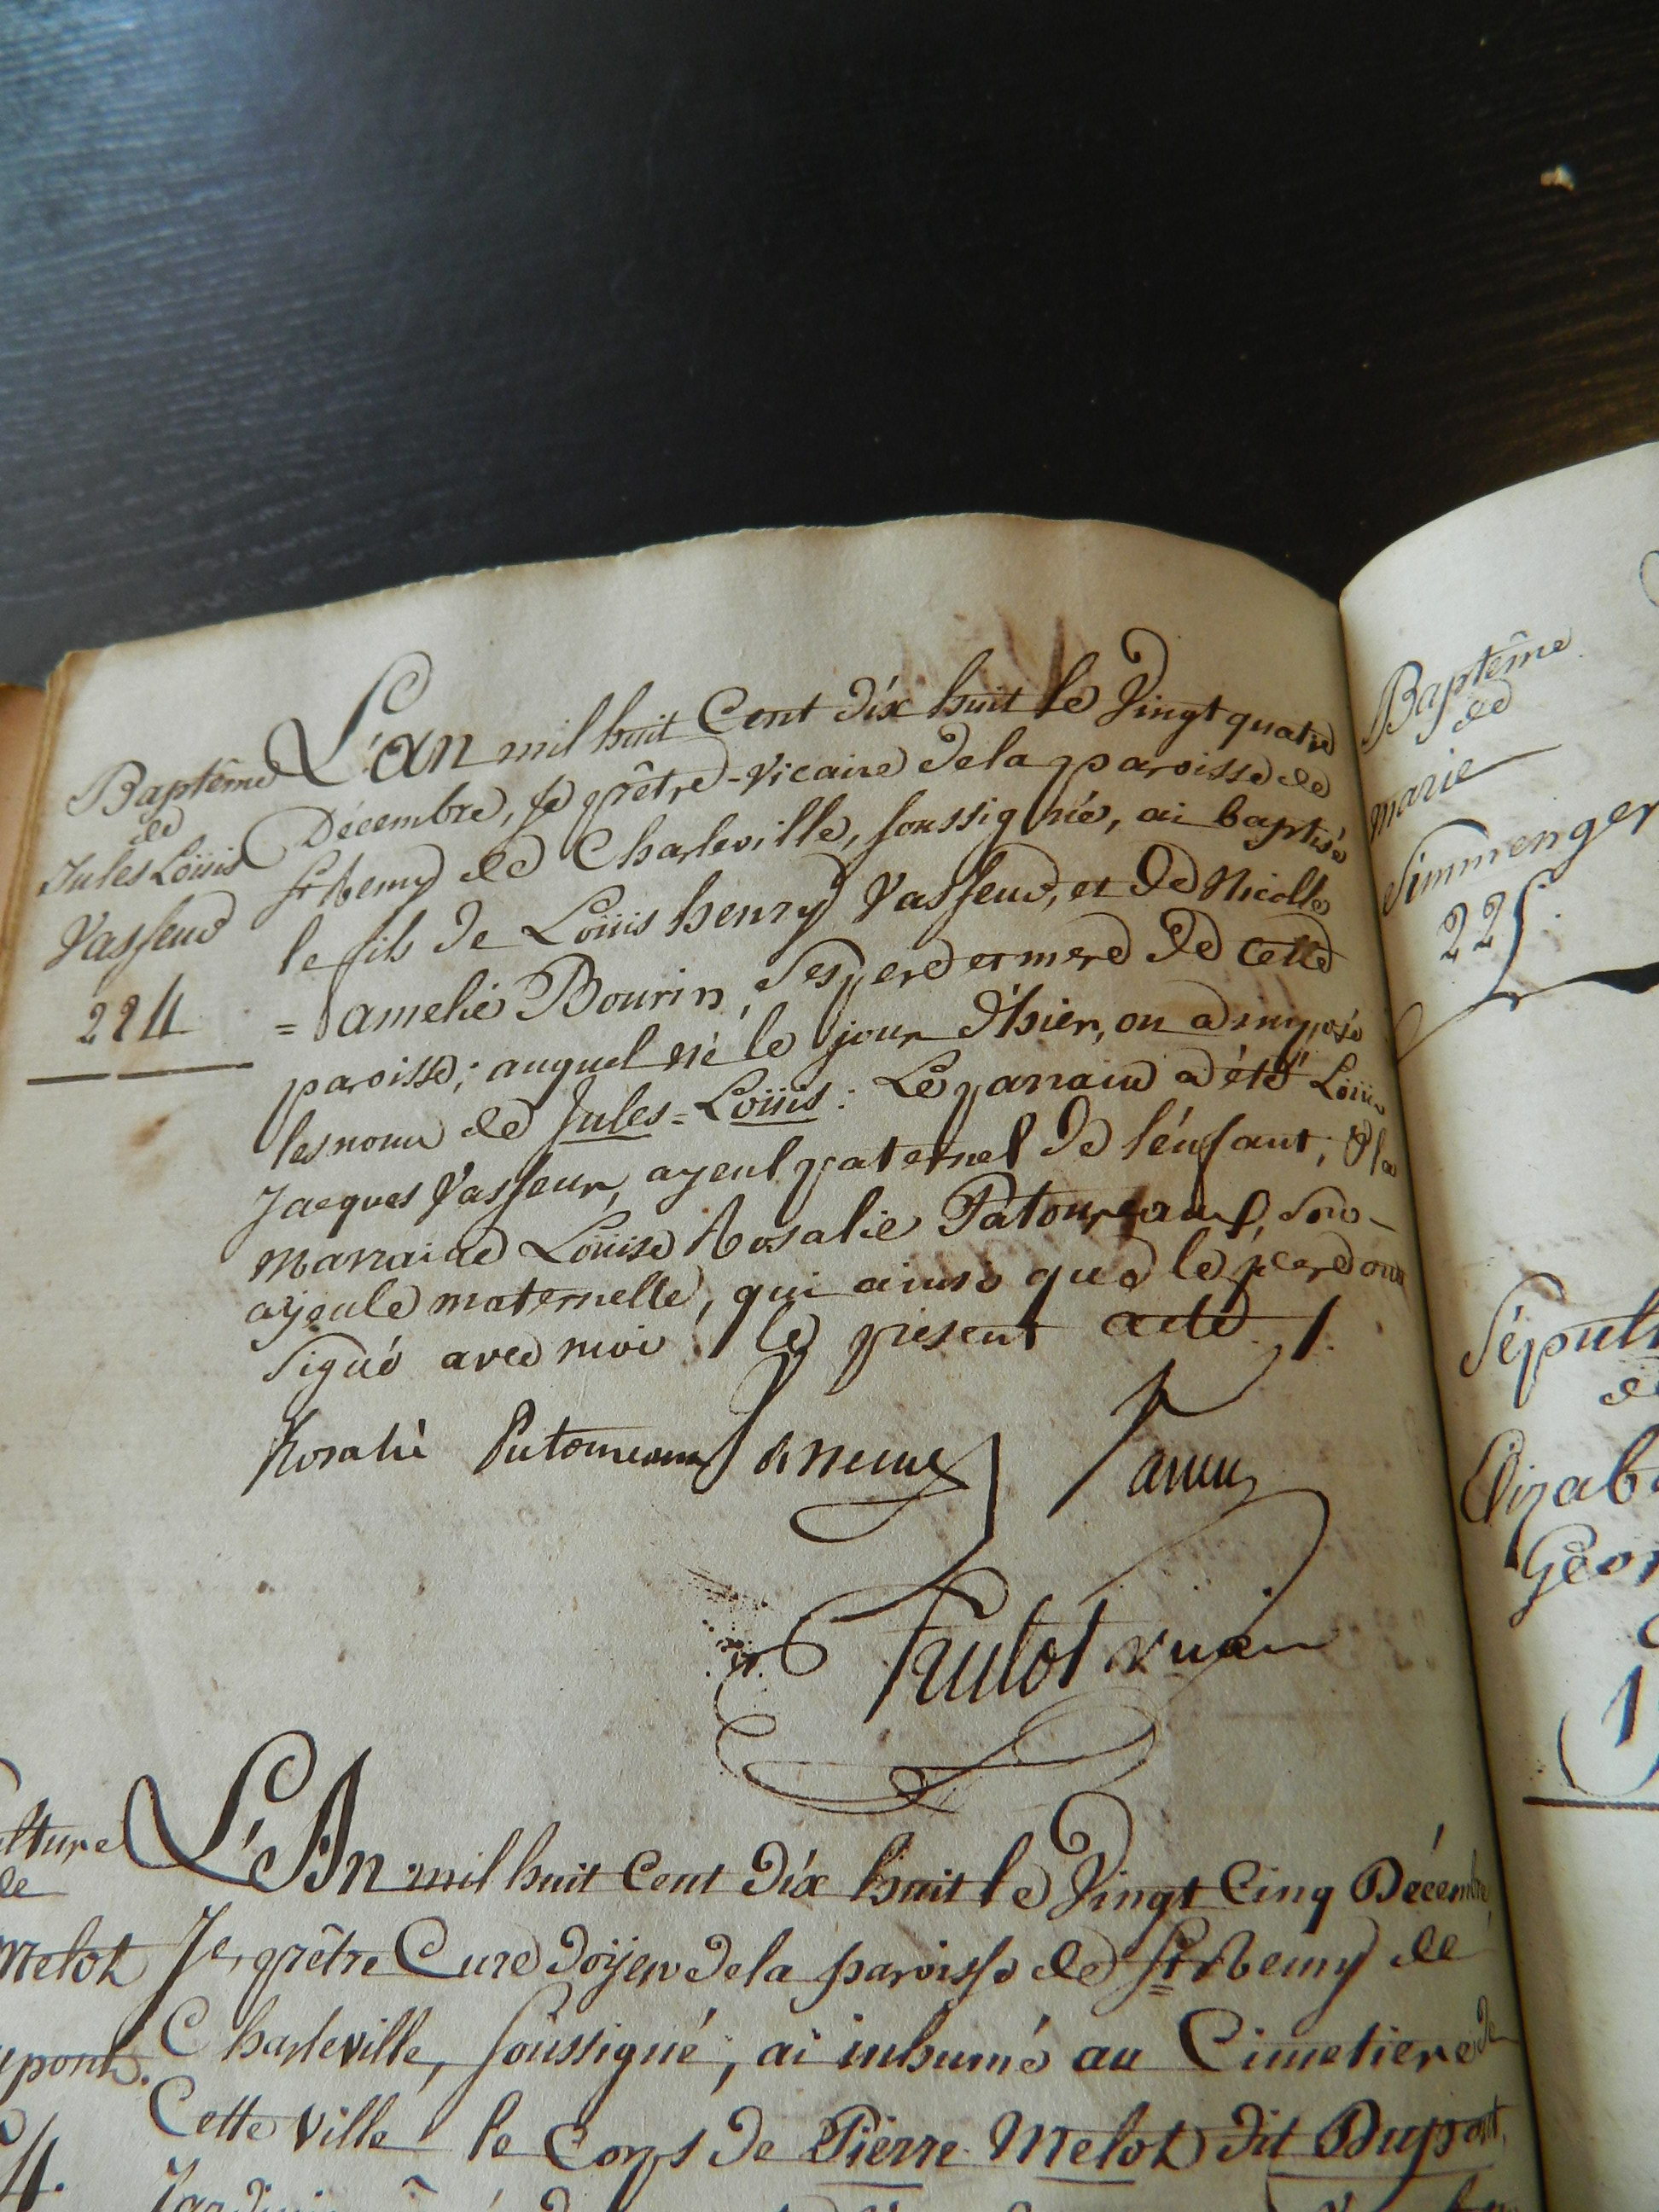 Baptême
de
Jules Loüis
Vasseur
224
L'an mil huit Cent dix huit le Vingt quatre
Décembre, je prêtre-vicaire de la paroisse de
St Remy de Charleville, soussigné, ai baptisé
le fils de Loüis henry Vasseur, et de Nicolle
= amelie Bourin, ses pere et mere de cette
paroisse; auquel né le jour d'hier, on a imposé
les noms de Jules=Loüis: Le parrain a été Loüis
Jacques Vasseur, ayeul paternel de l'énfant, & la
marraine Loüise Rosalie Patoureaux, son
ayeule maternelle, qui ainsi que le père ont
Signé avec moi le présent acte /.
Rosalie Patoureaux
vicaire
L'An mil huit Cent dix huit le Vingt Cinq Décembre,
Je, prêtre Curé doÿen de la paroisse de St Remy de
Charleville, soussigné, ai inhumé au Cimetiere de
Cette Ville le Corps de Pierre Melot dit Dupont,
Melot
Baptême
de
marie
Simmenger
225.
Sépult
de
Elizab
Geor